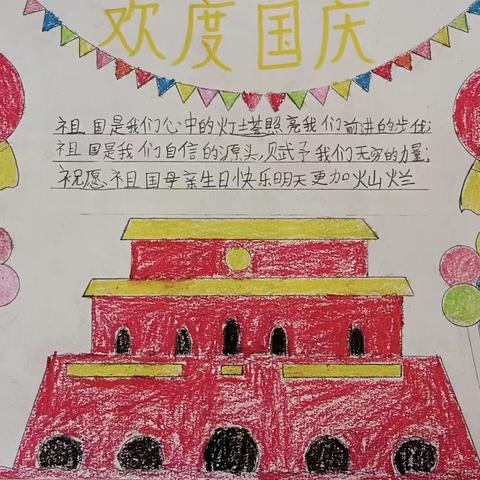 欢度国庆
祖国是我们心中的灯塔照亮我们前进的步伐;
祖国是我们自信的源头,赋予我们无穷的力量;
祝愿祖国母亲生日快乐明天更加灿烂